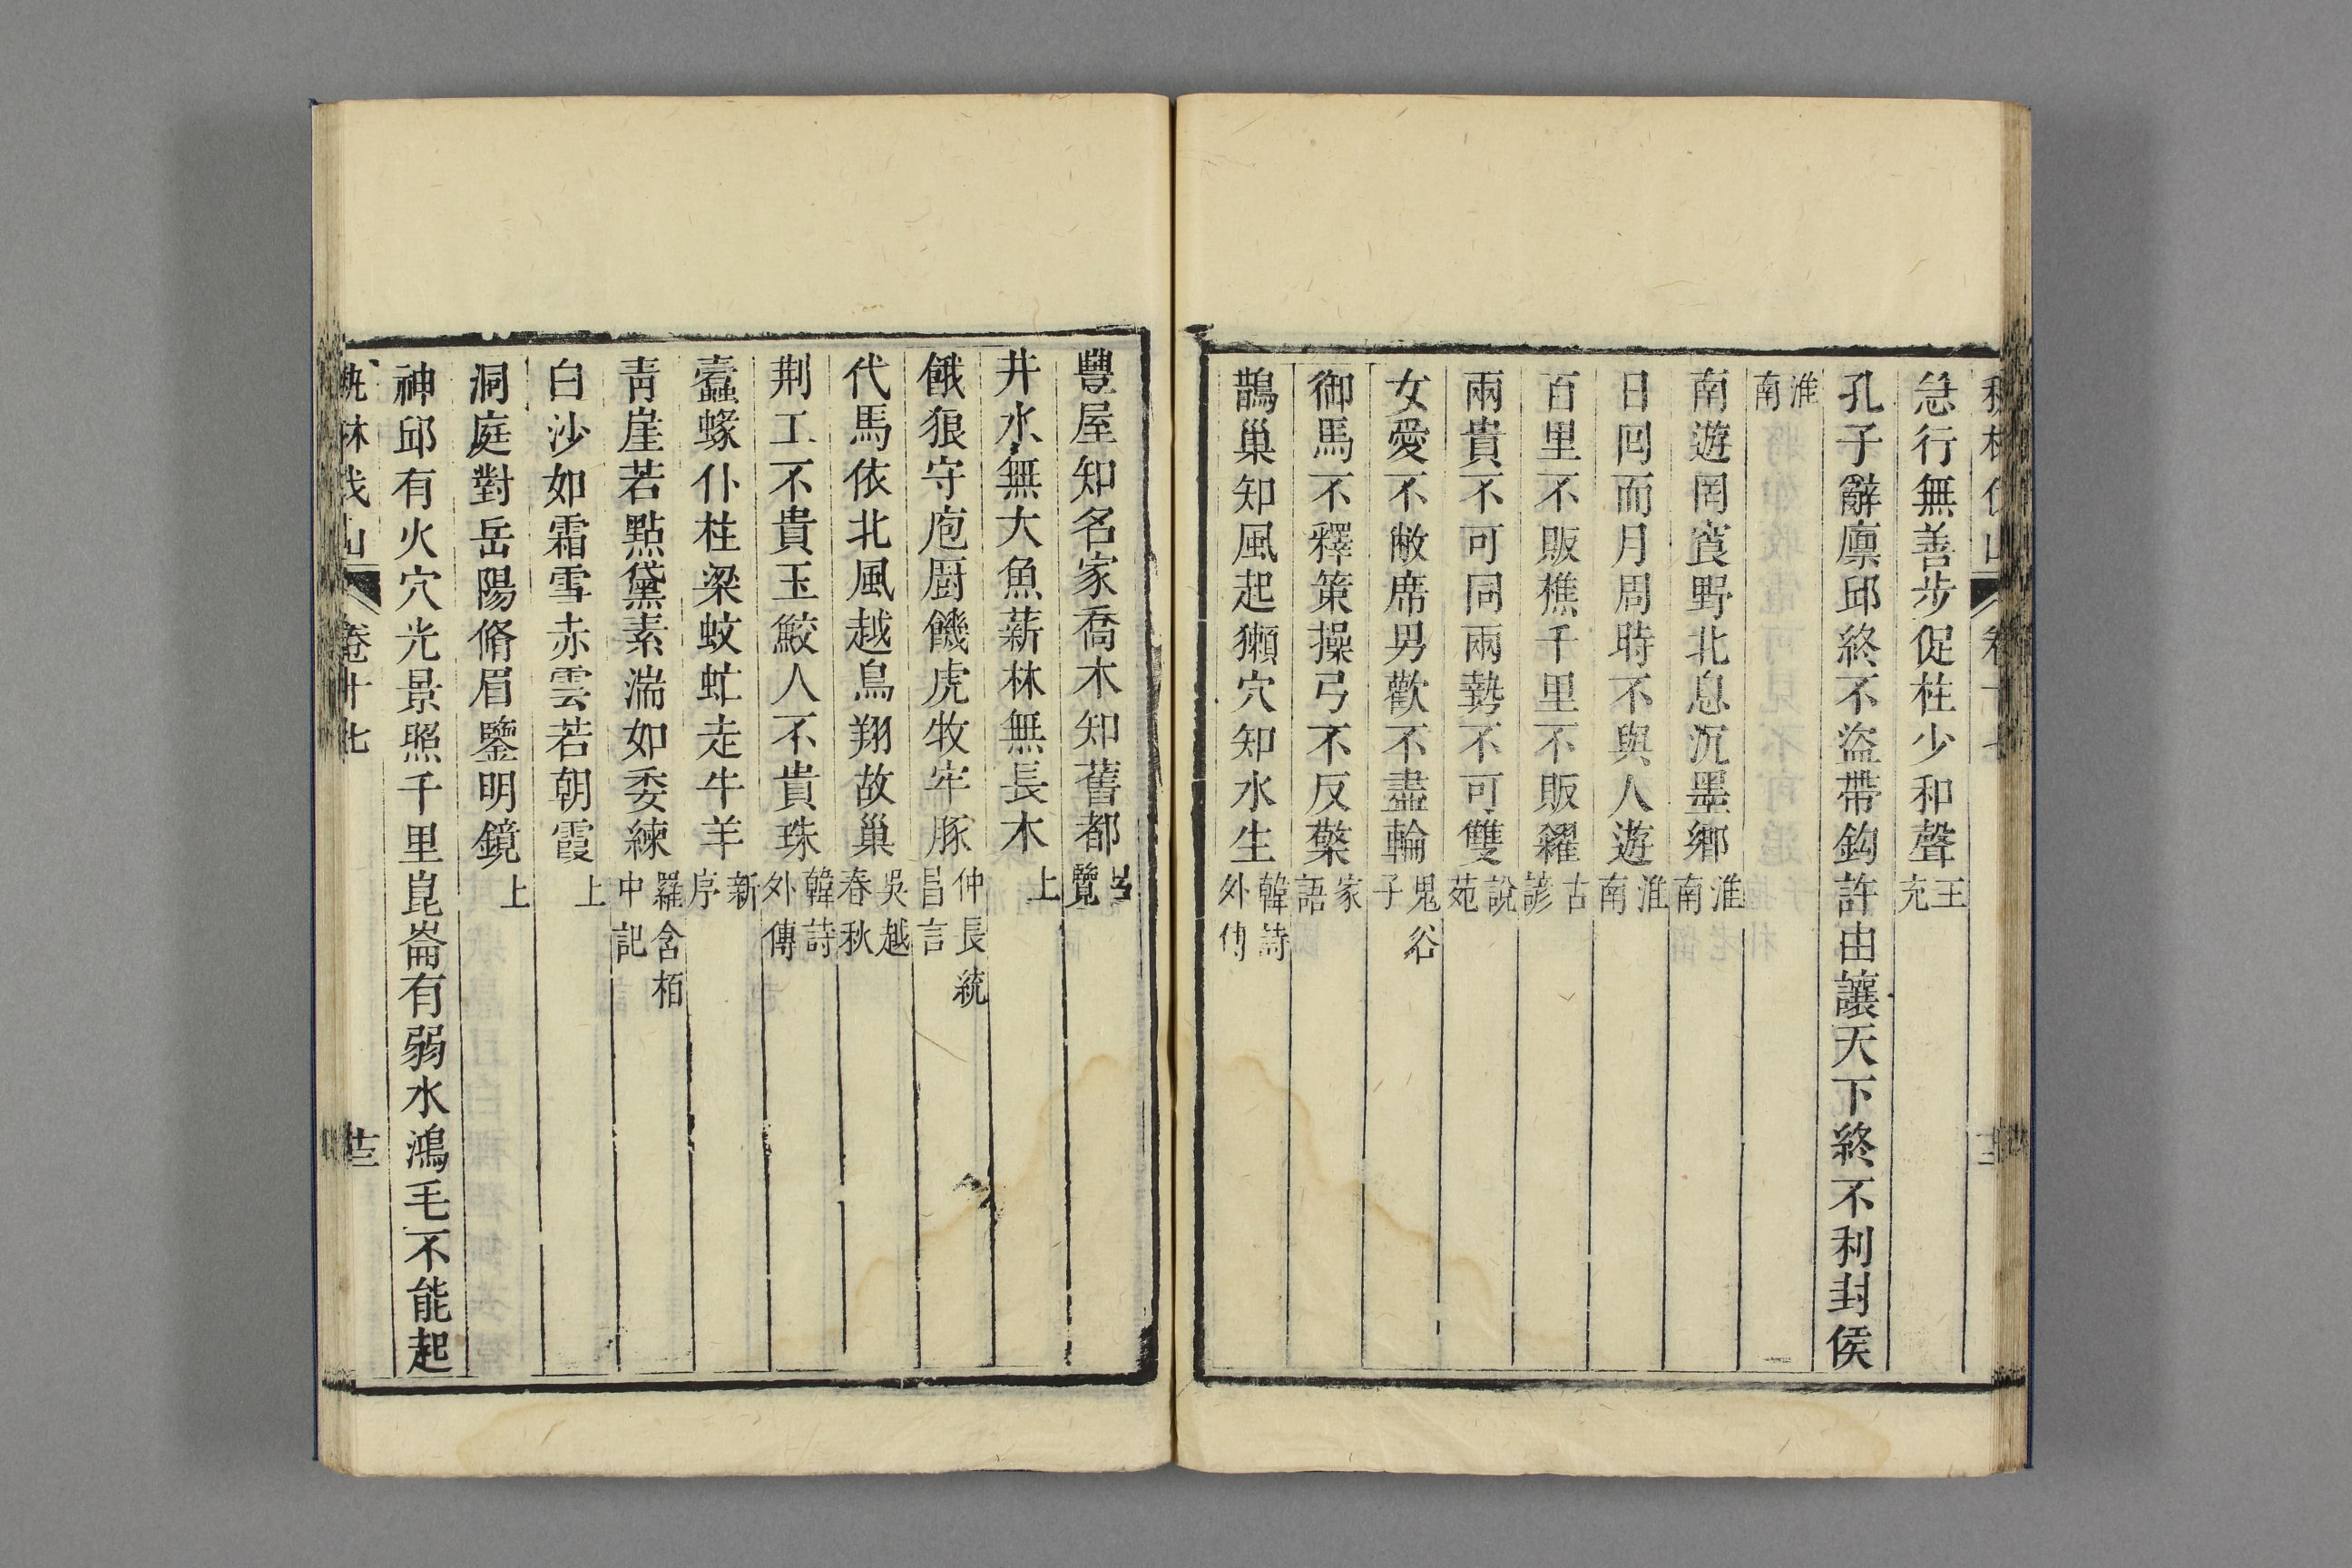 急行無善步促柱少和聲王充
孔子辭廪邱終不盜帶鈎許由讓天下終不利封侯
淮南
南遊罔㝗野北息沉墨鄉淮南
日回而月周時不與人遊淮南
百里不販樵千里不販糴古諺
兩貴不可同兩勢不可雙說苑
女愛不敝席男歡不盡輪鬼谷子
御馬不釋策操弓不反檠家語
鵲巢知風起獺穴知水生韓詩外傳
豐屋知名家喬木知舊都覽
井水無大魚薪林無長木上
餓狼守庖厨饑虎牧牢豚仲長統昌言
代馬依北風越鳥翔故巢吳越春秋
荆工不貴玉鮫人不貴珠韓詩外傳
蠹蝝仆柱梁蚊虻走牛羊新序
靑崖若點黛素湍如委練羅含栢中記
白沙如霜雪赤雲若朝霞上
洞庭對岳陽脩眉鑒明鏡上
神邱有火穴光景照千里崑崙有弱水鴻毛不能起
林伐山 卷十七 廿三